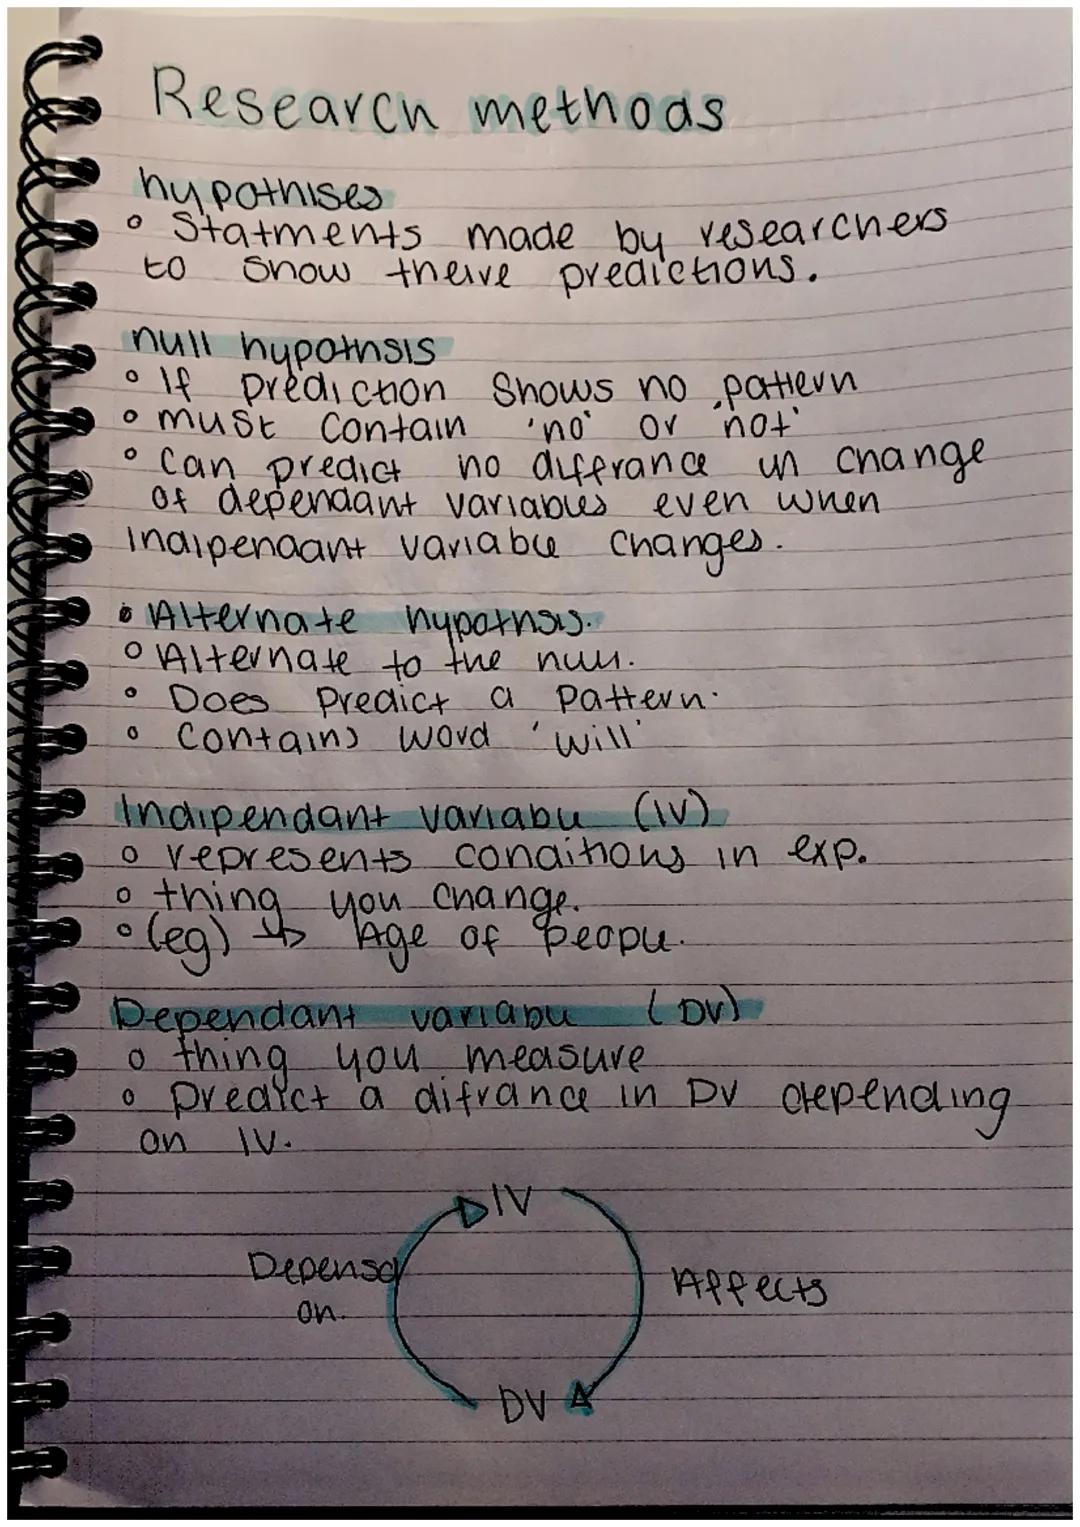 Research methods
hypothises
° Statments made by researchers
to show theire predictions.
null hypothsis
° If prediction shows no pattern
° must contain 'no' or 'not'
° Can predict no diffrance in change
of dependant variables even when
indipendant variable changes.
° Alternate hypothsis.
° Alternate to the null.
° Does Predict a Pattern.
° Contains word 'will'
Indipendant variable (IV)
° represents conditions in exp.
° thing you change.
° (eg) ↳ Age of people.
Dependant variable (DV)
° thing you measure
° Predict a difrance in DV depending
on IV.
IV
Depensd
on.
Affects
DV